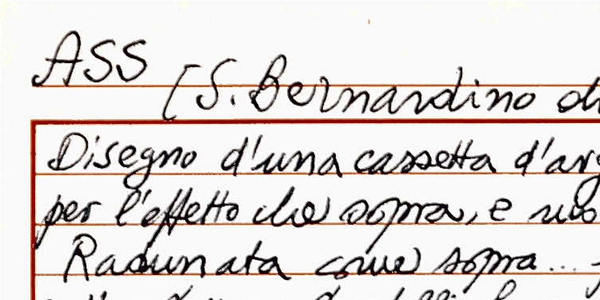 ASS
[S. Bernardino di
Disegno d'una cassetta d'arg
per l'effetto che sopra, e
Radunata come sopra...